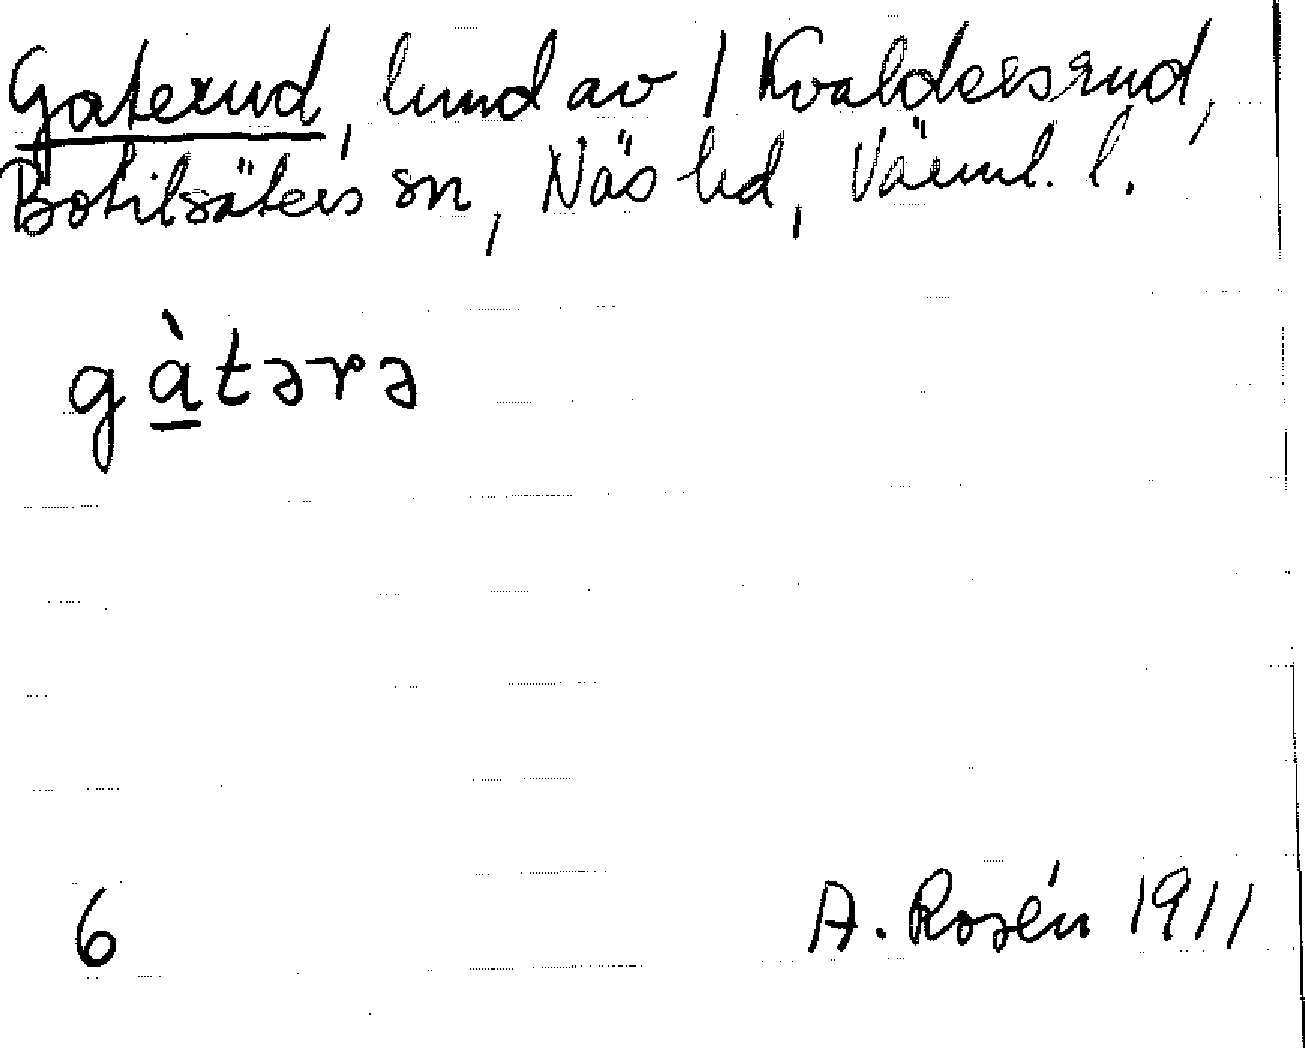 Gaterud, lund av 1 Kvaldersrud,
Botilsäters sn, Näs hd, Värml. l.
gàtərə
6
A. Rosén 1911